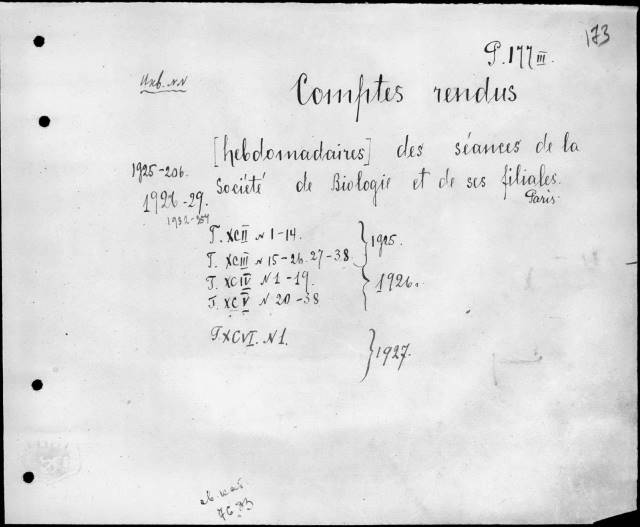 173
P. 177 III.
Инв. NN
Comptes rendus
[hebdomadaires] des séances de la
1925-206.
Société de Biologie et de ses filiales.
1926-29.
Paris.
T. XCII N 1-14.
T. XCIII N 15-26. 27-38. } 1925.
T. XCIV N 1-19.
T. XCV N 20-38 } 1926.
T. XCVI. N 1. } 1927.